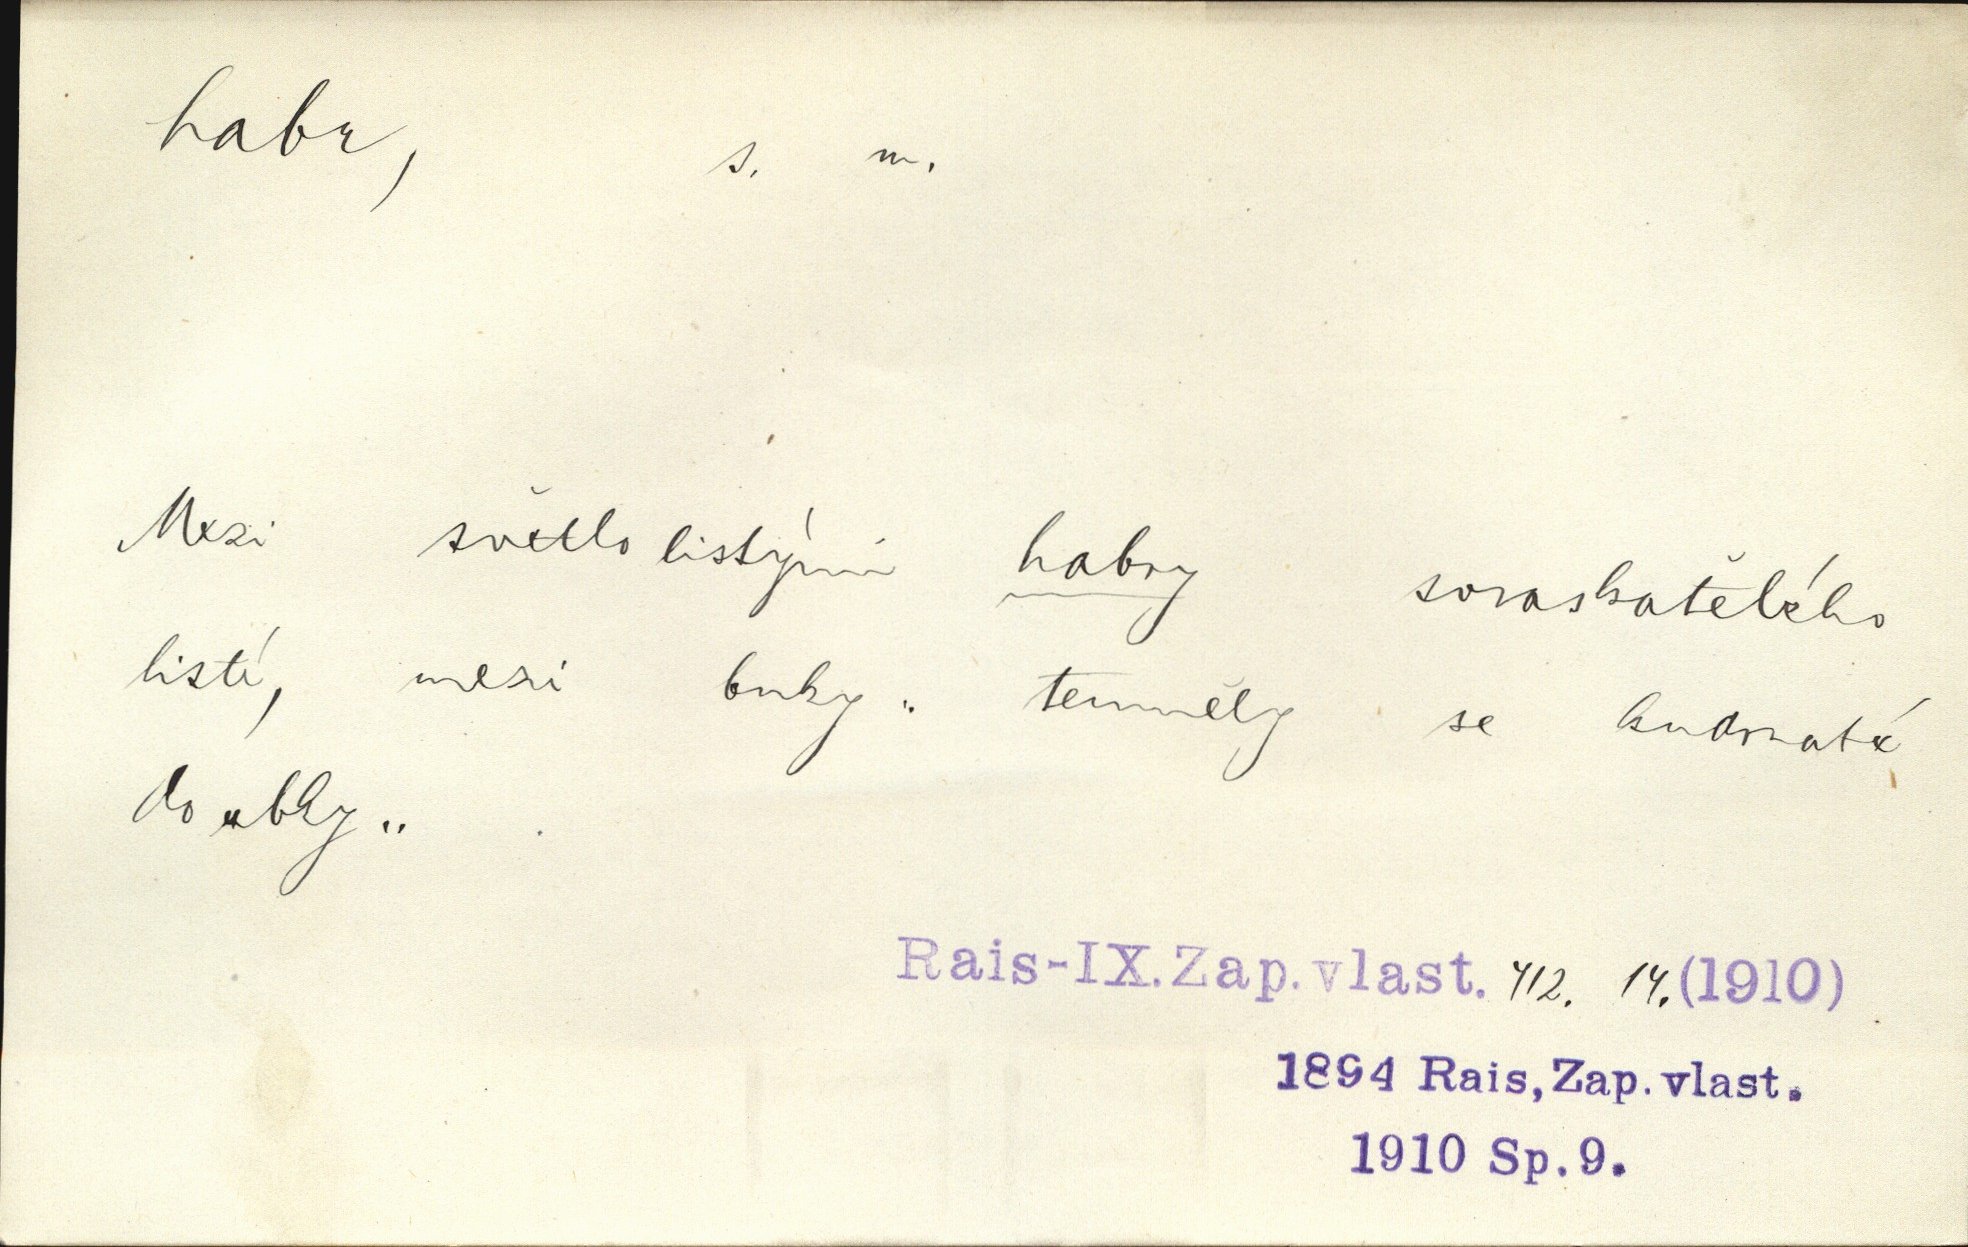 habr, s. m.
Mezi světlolistými habry svraskatělého
listí, mezi buky .. temněly se kudrnaté
doubky ..
Rais-IX. Zap. vlast. 412. 14. (1910)
1894 Rais, Zap. vlast.
1910 Sp. 9.